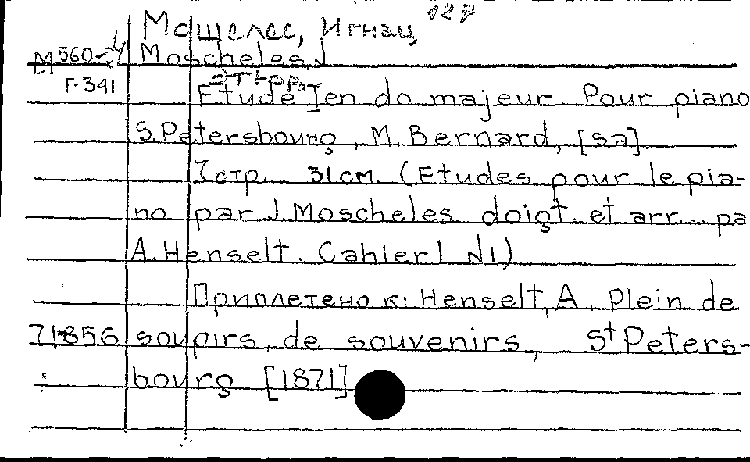 Мошелес, Игнац
M 560-4 Moscheles J
Г-341
Etude I en do majeur. Pour piano
S.Petersbourg, M. Bernard, [sa]
7стр. 31см. (Etudes pour le pia-
no par J. Moscheles doigt. et arr. pa
A. Henselt. Cahier I N1)
Приплетено к: Henselt, A. Plein de
71856 soupirs, de souvenirs, St Peters-
bourg [1871]